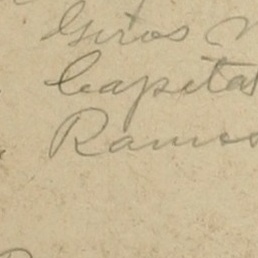 Giros
Capitas
Ramo